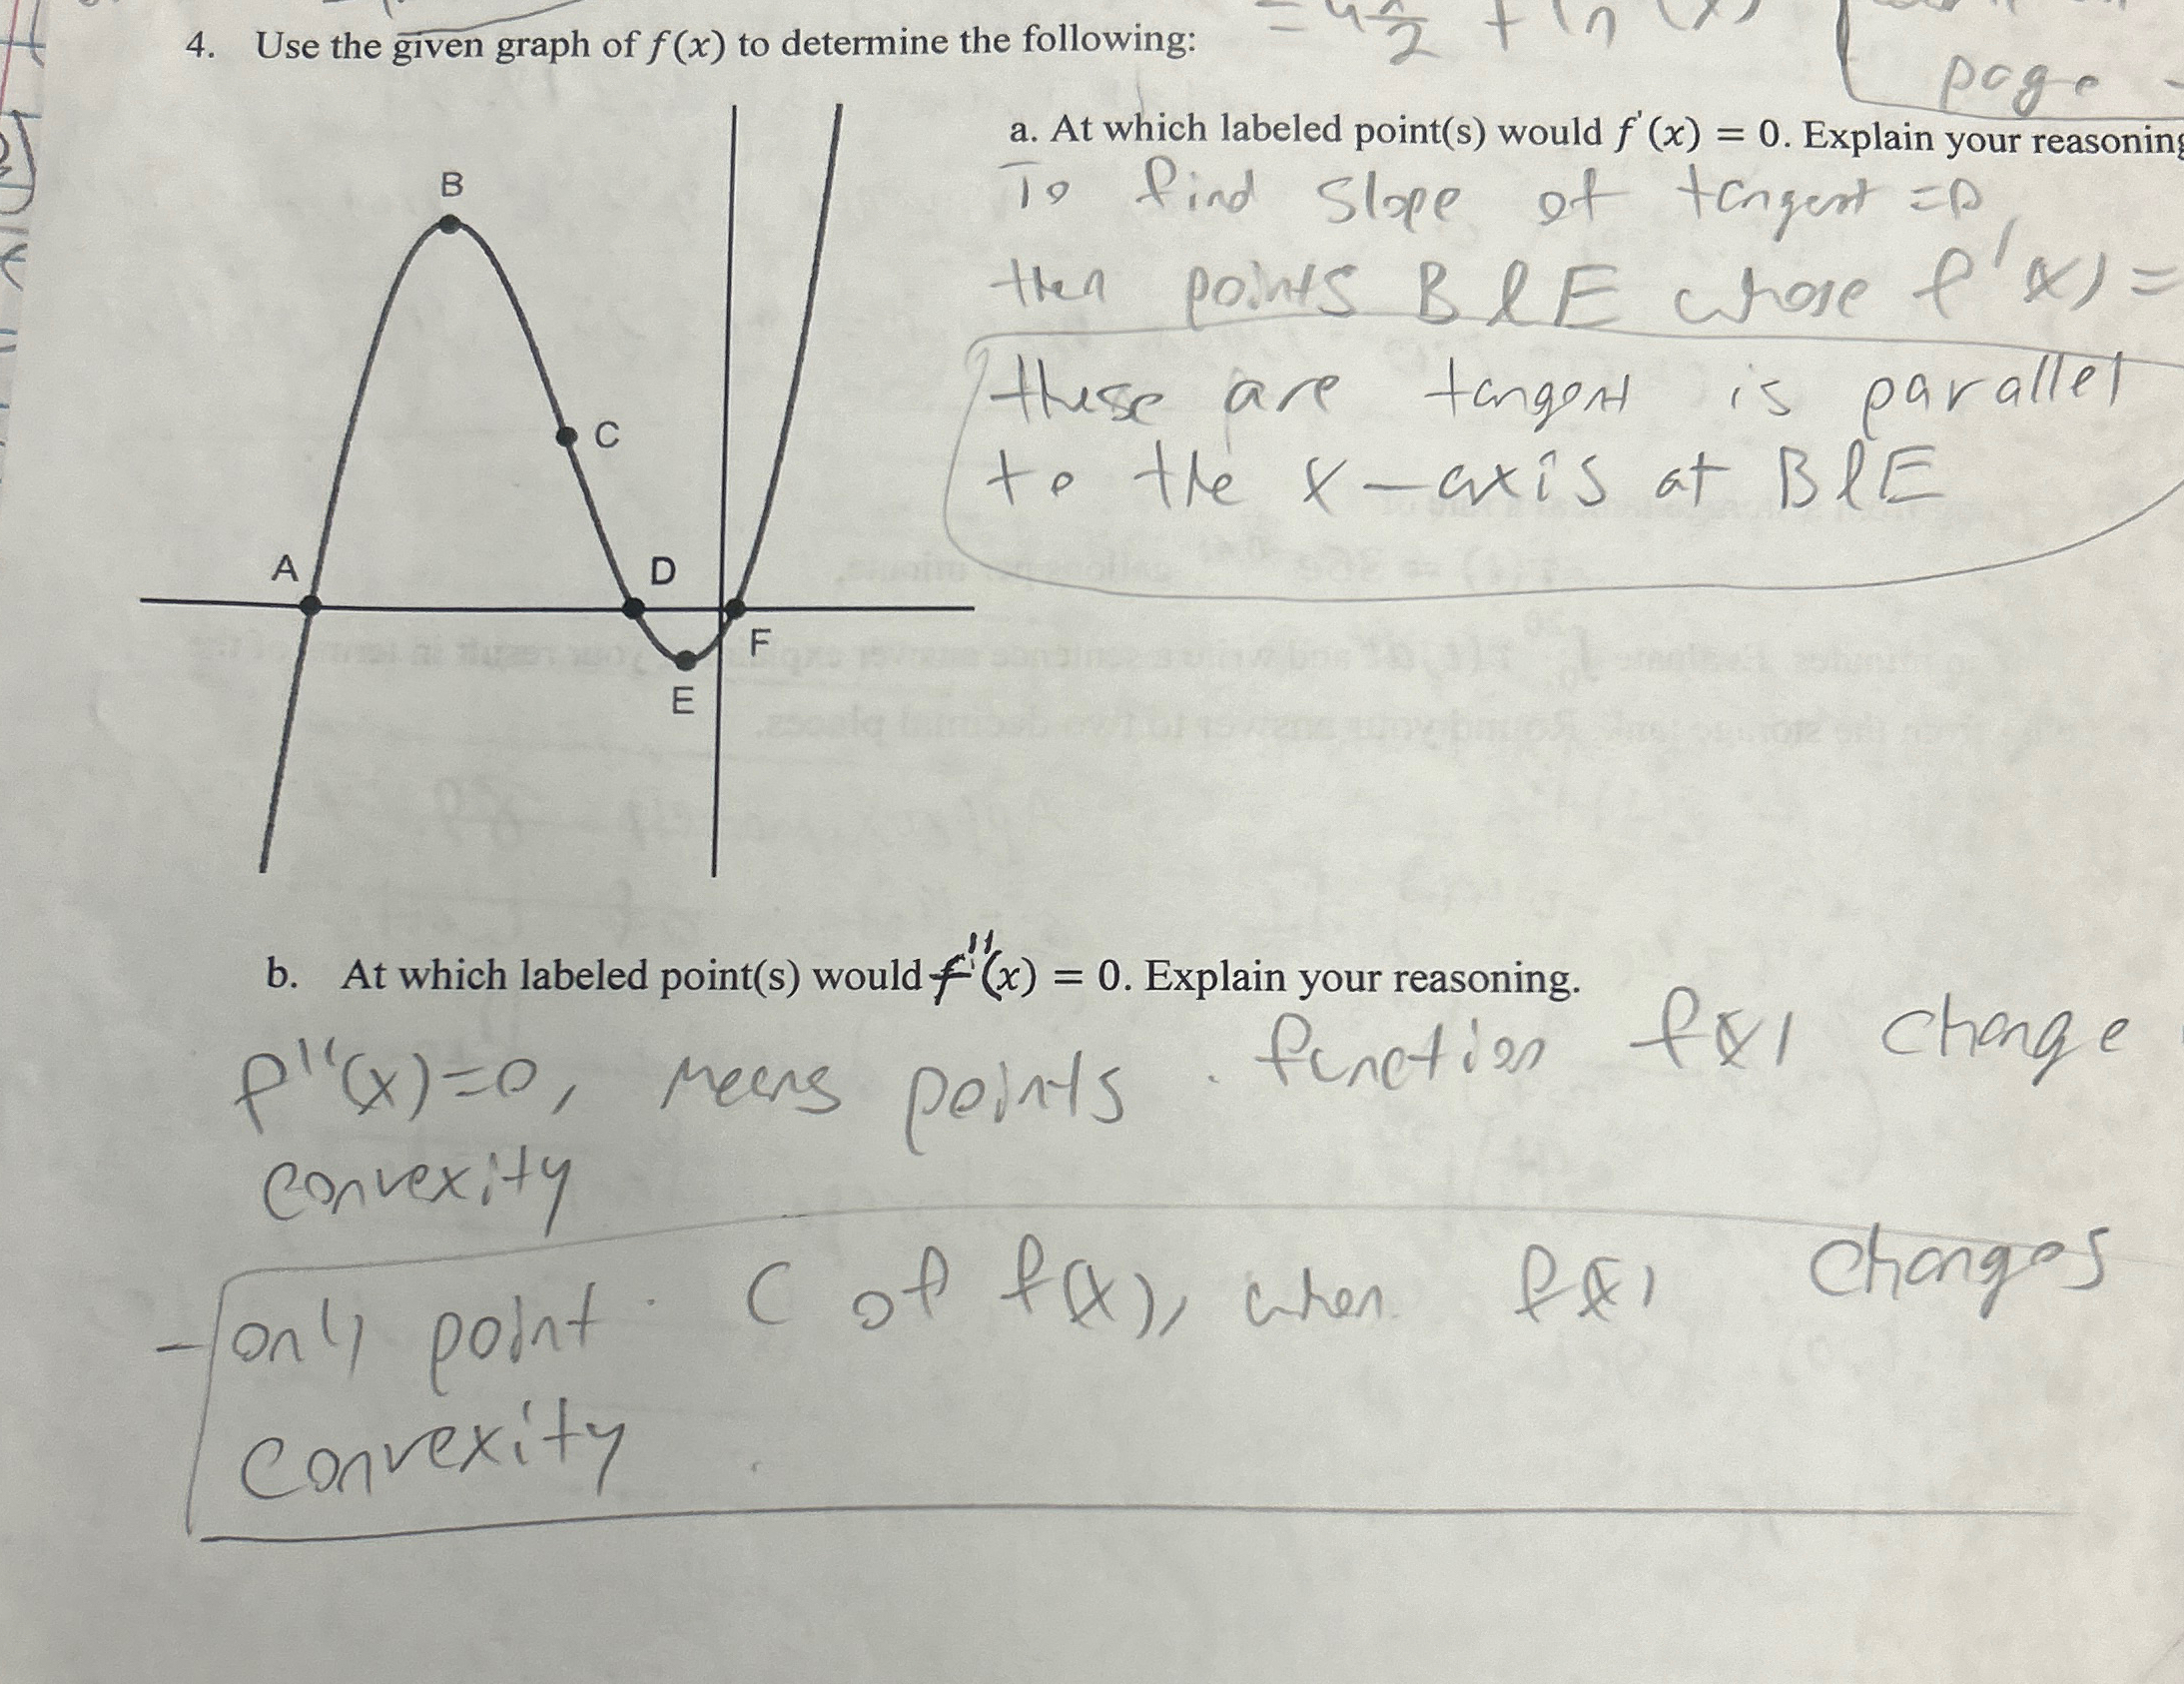 = 4 x/2 + ln(x)
page
4. Use the given graph of f(x) to determine the following:
a. At which labeled point(s) would f'(x) = 0. Explain your reasoning
To find slope of tangent =0,
then points B & E whose f'(x) =
these are tangent is parallel
to the x-axis at B & E
B
C
A
D
F
E
b. At which labeled point(s) would f''(x) = 0. Explain your reasoning.
f''(x)=0, means points function f(x) change
convexity
- only point C of f(x), when f(x) changes
convexity